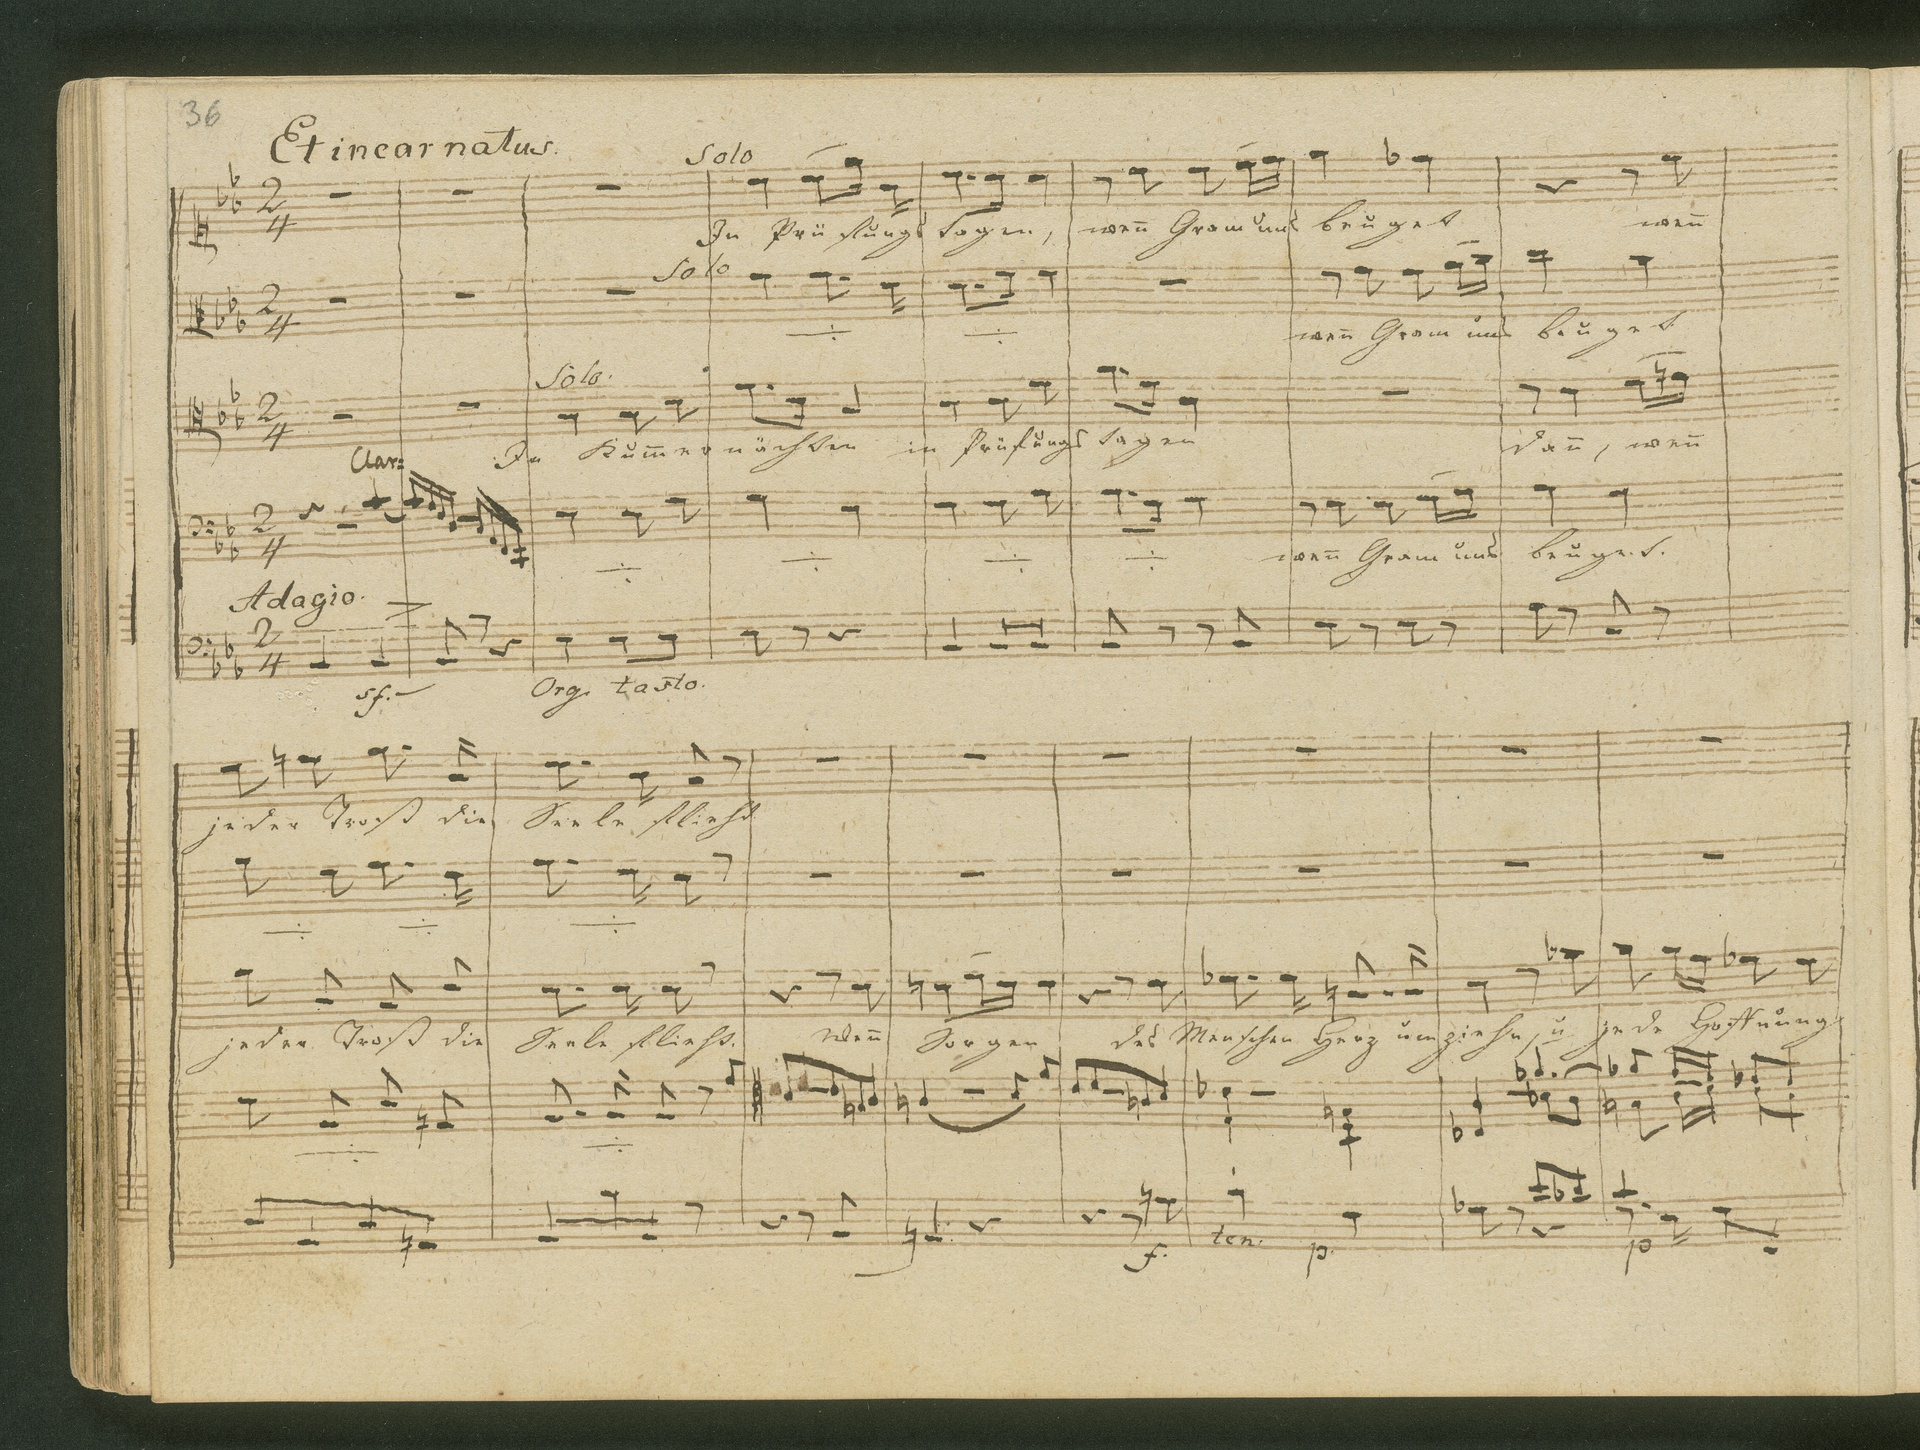 36
Et incarnatus.
Solo
2/4
In Prüfungstagen, wen̄ Gram uns beuget wen̄
Solo
2/4
wen̄ Gram uns beuget
Solo.
2/4
In Kum̄ernächten in Prüfungstagen dan̄, wen̄
Clar:
2/4
wen̄ Gram uns beuget.
Adagio.
2/4
sf. Org. tasto.
jeder Trost die Seele flieht
jeder Trost die Seele flieht. Wen̄ Sorgen des Menschen Herz umziehn, u jede Hoffnung
f. ten. p. p